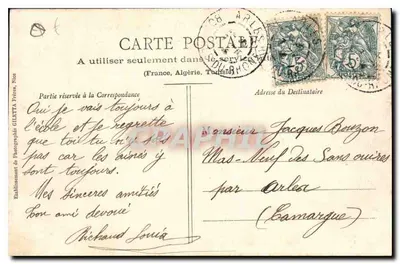 CARTE POSTALE
A utiliser seulement dans le service
(France, Algérie, Tunisie)
Partie réservée à la Correspondance
Adresse du Destinataire
Oui je vais toujours à
l'école et je regrette
que toi tu n'y sois
pas car les aînés y
sont toujours.
Mes sincères amitiés
Ton ami dévoué
Richaud Louis
Monsieur Jacques Bouzon
Mas-Neuf des Sansouires
par Arles
(Camargue)
Etablissement de Photographie GILETTA Frères, Nice
ARLES
5
5
DELCAMPE